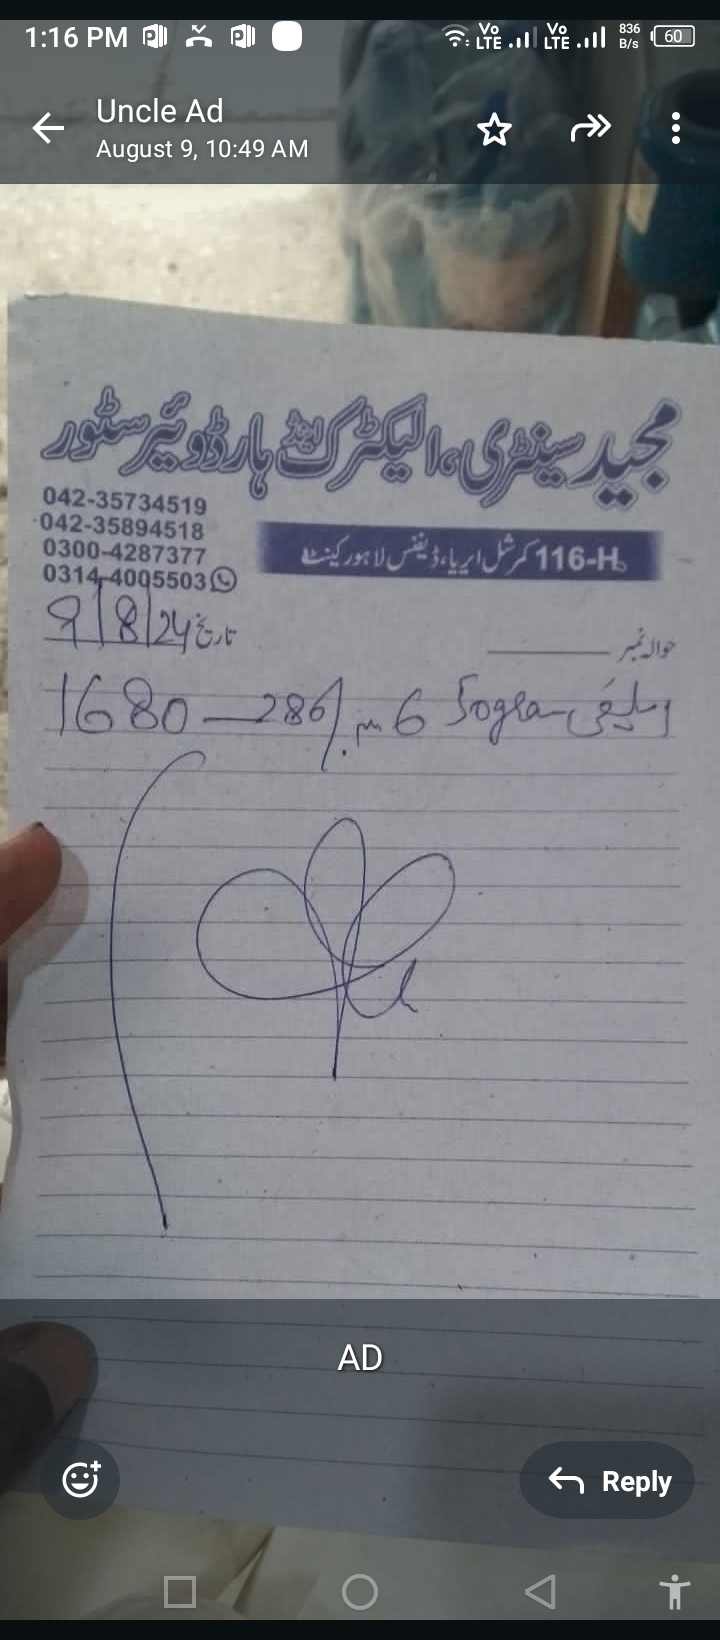 1:16 PM Vo LTE Vo LTE 836 B/s 60
Uncle Ad
August 9, 10:49 AM
مجید سینٹری، الیکٹرک اینڈ ہارڈویئر سٹور
042-35734519
042-35894518
0300-4287377
0314-4005503
116-H کمرشل ایریا، ڈیفنس لاہور کینٹ
تاریخ 9/8/24
حوالہ نمبر
6 286/ 1680
AD
Reply